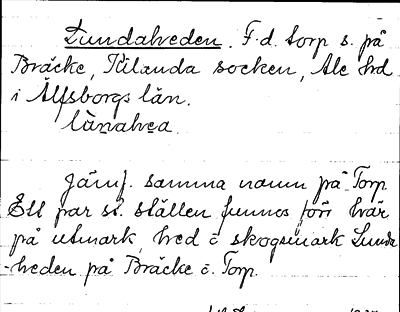 Lundalveden. F.d. torp s. på
Bräcke, Tölanda socken, Ale hrd
i Älfsborgs län.
lùnalvea
Jämf. samma namn på Torp
Ett par st. ställen funnos förr här
på utmark, hed o skogsmark Lunda
-heden på Bräcke o. Torp.